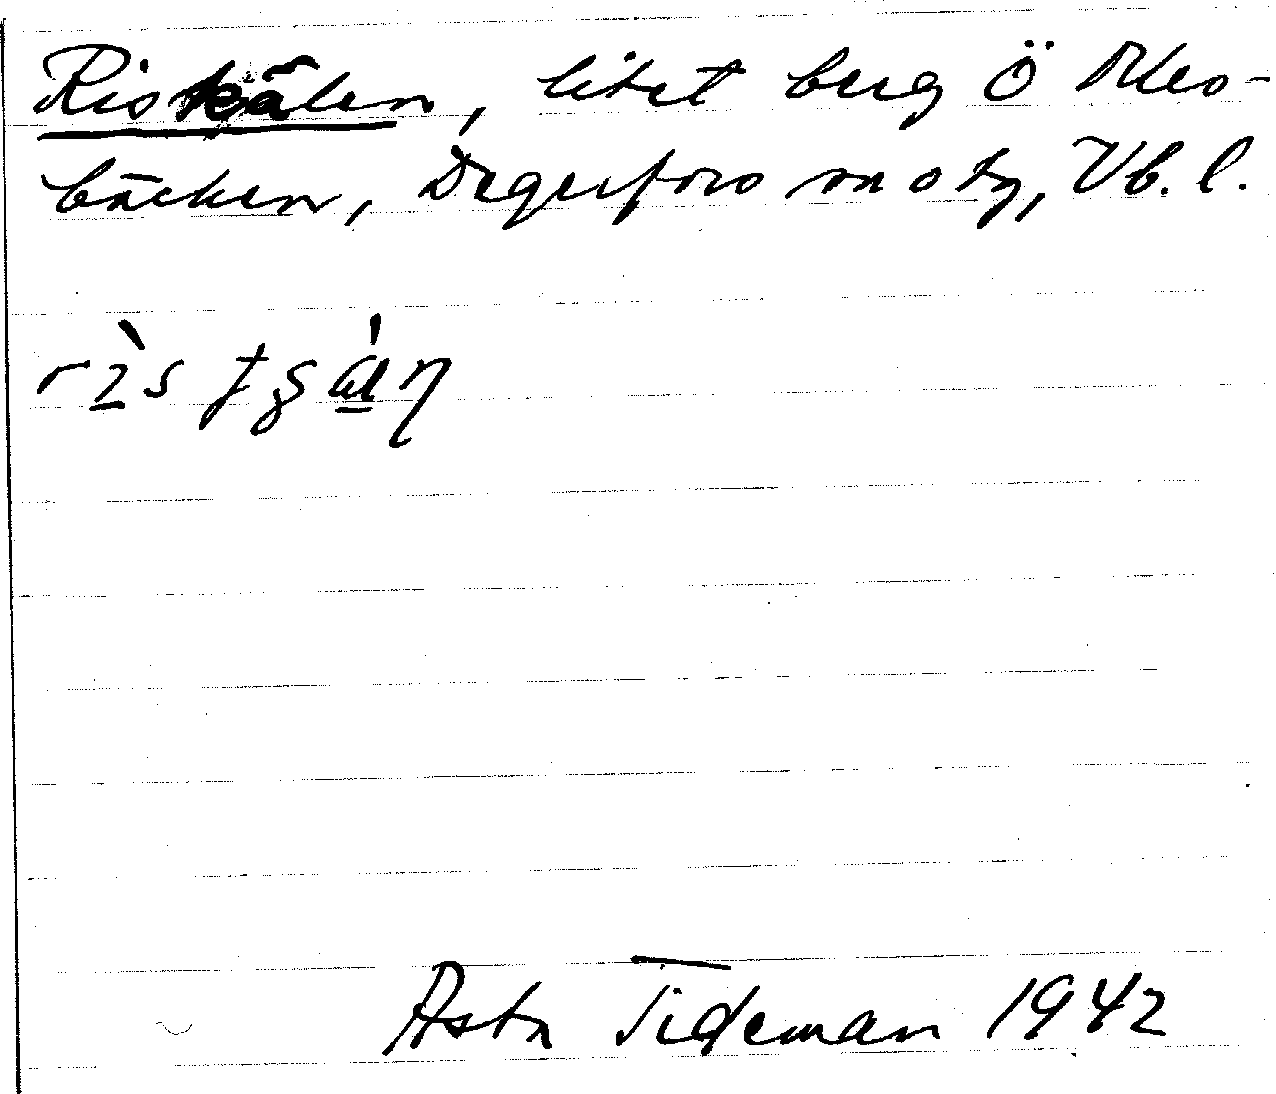 Riskålen, litet berg Ö Åles-
bäcken, Degerfors sn o tg, Vb. l.
Asta Tideman 1942